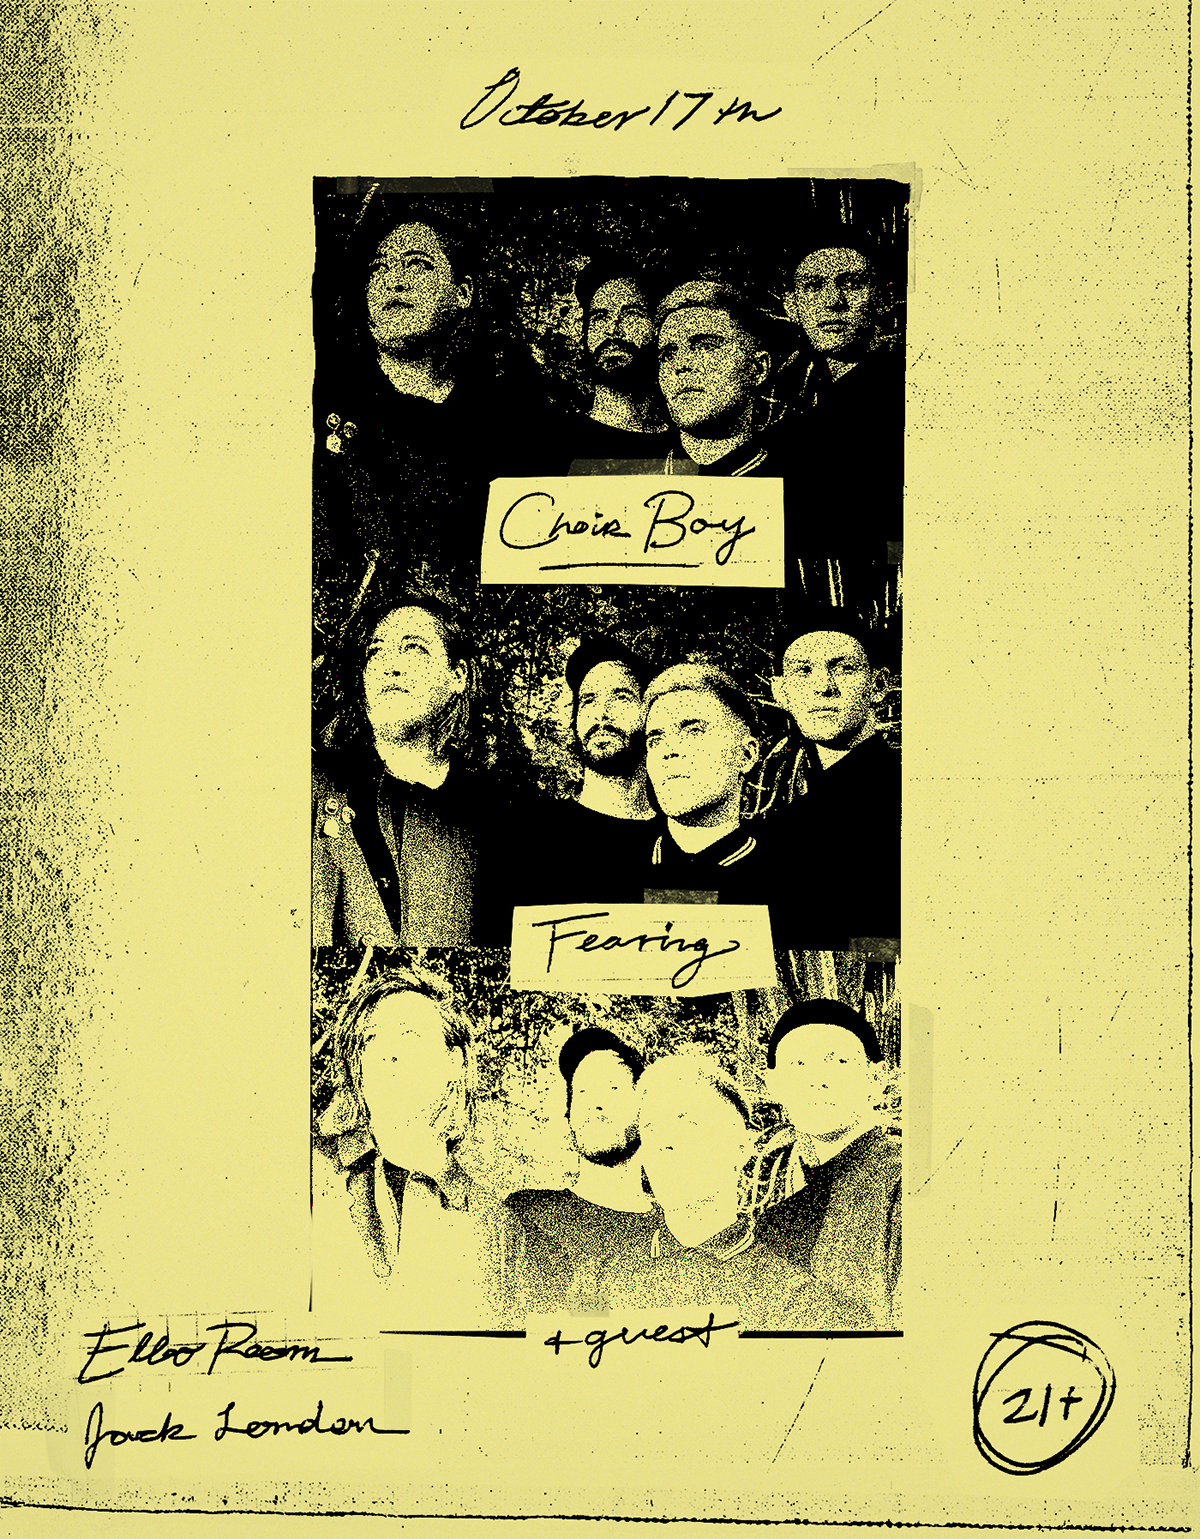 October 17th
Choir Boy
Fearing
+guest
Elbo Room
Jack London
21+